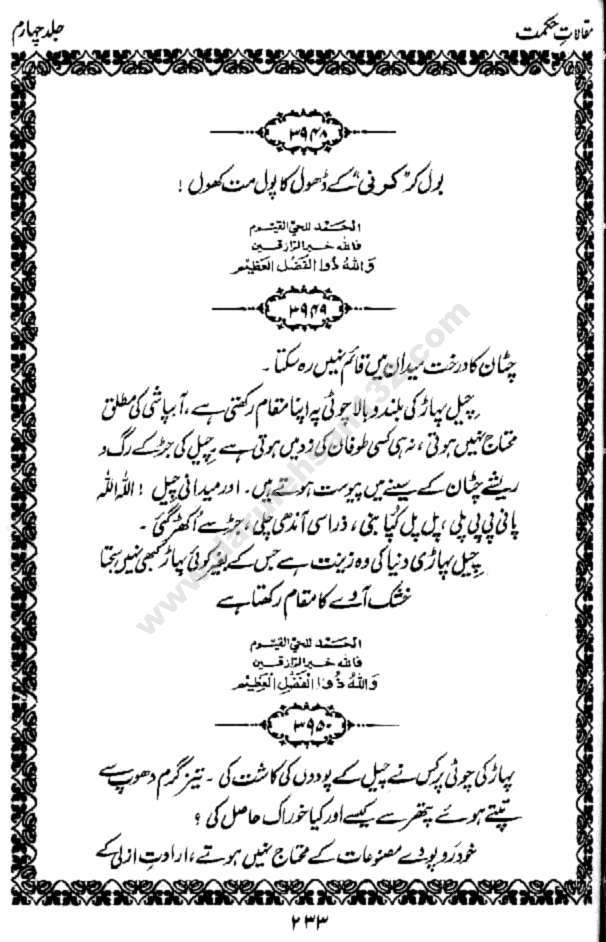 مقالاتِ حکمت
جلد چہارم
۳۹۴۸
بول کر "کرنی" کے ڈھول کا پول مت کھول !
الحمد للحی القیوم
فاللہ خیر الرازقین
واللہ ذوالفضل العظیم
۳۹۴۹
چٹان کا درخت میدان میں قائم نہیں رہ سکتا ۔
چیل پہاڑ کی بلند و بالا چوٹی پہ اپنا مقام رکھتی ہے ، آبپاشی کی مطلق
محتاج نہیں ہوتی ، نہ ہی کسی طوفان کی زد میں ہوتی ہے ۔ چیل کی جڑ کے رگ و
ریشے چٹان کے سینے میں پیوست ہوتے ہیں ۔ اور میدانی چیل ! اللہ اللہ
پانی پی پی پلی ، پل پل کُپّا بنی ، ذرا سی آندھی چلی ، جڑ سے اُکھڑ گئی ۔
چیل پہاڑی دنیا کی وہ زینت ہے جس کے بغیر کوئی پہاڑ کبھی نہیں سجتا
خشک آوے کا مقام رکھتا ہے
الحمد للحی القیوم
فاللہ خیر الرازقین
واللہ ذوالفضل العظیم
۳۹۵۰
پہاڑ کی چوٹی پر کس نے چیل کے پودوں کی کاشت کی ۔ نیز گرم دھوپ سے
تپتے ہوئے پتھر سے کیسے اور کیا خوراک حاصل کی ؟
خودرو پودے مصنوعات کے محتاج نہیں ہوتے ، ارادتِ ازلی کے
۲۳۳